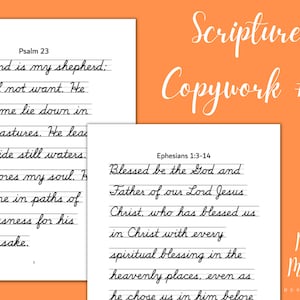 Psalm 23
nd is my shepherd;
l not want. He
me lie down in
astures. He lead
ide still waters.
ores my soul. H
e in paths of
sness for his
sake.
Ephesians 1:3-14
Blessed be the God and
Father of our Lord Jesus
Christ, who has blessed us
in Christ with every
spiritual blessing in the
heavenly places, even as
he chose us in him before
Scripture
Copywork